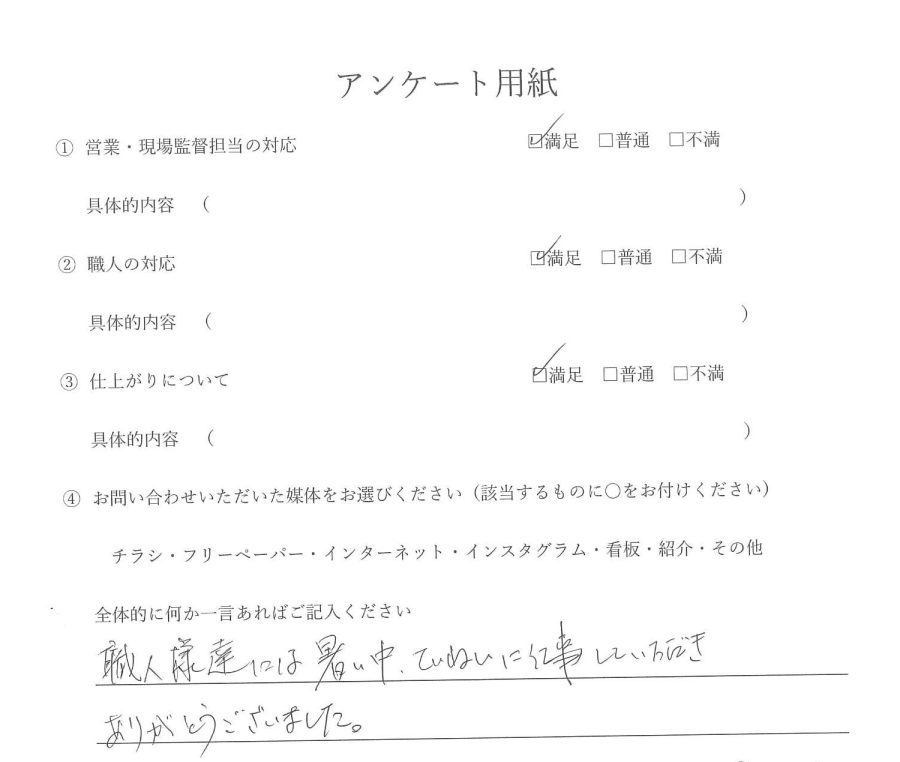 アンケート用紙
① 営業・現場監督担当の対応 ☑満足 □普通 □不満
具体的内容 （ ）
② 職人の対応 ☑満足 □普通 □不満
具体的内容 （ ）
③ 仕上がりについて ☑満足 □普通 □不満
具体的内容 （ ）
④ お問い合わせいただいた媒体をお選びください（該当するものに〇をお付けください）
チラシ・フリーペーパー・インターネット・インスタグラム・看板・紹介・その他
全体的に何か一言あればご記入ください
職人様達には暑い中、ていねいに仕事していただき
ありがとうございました。